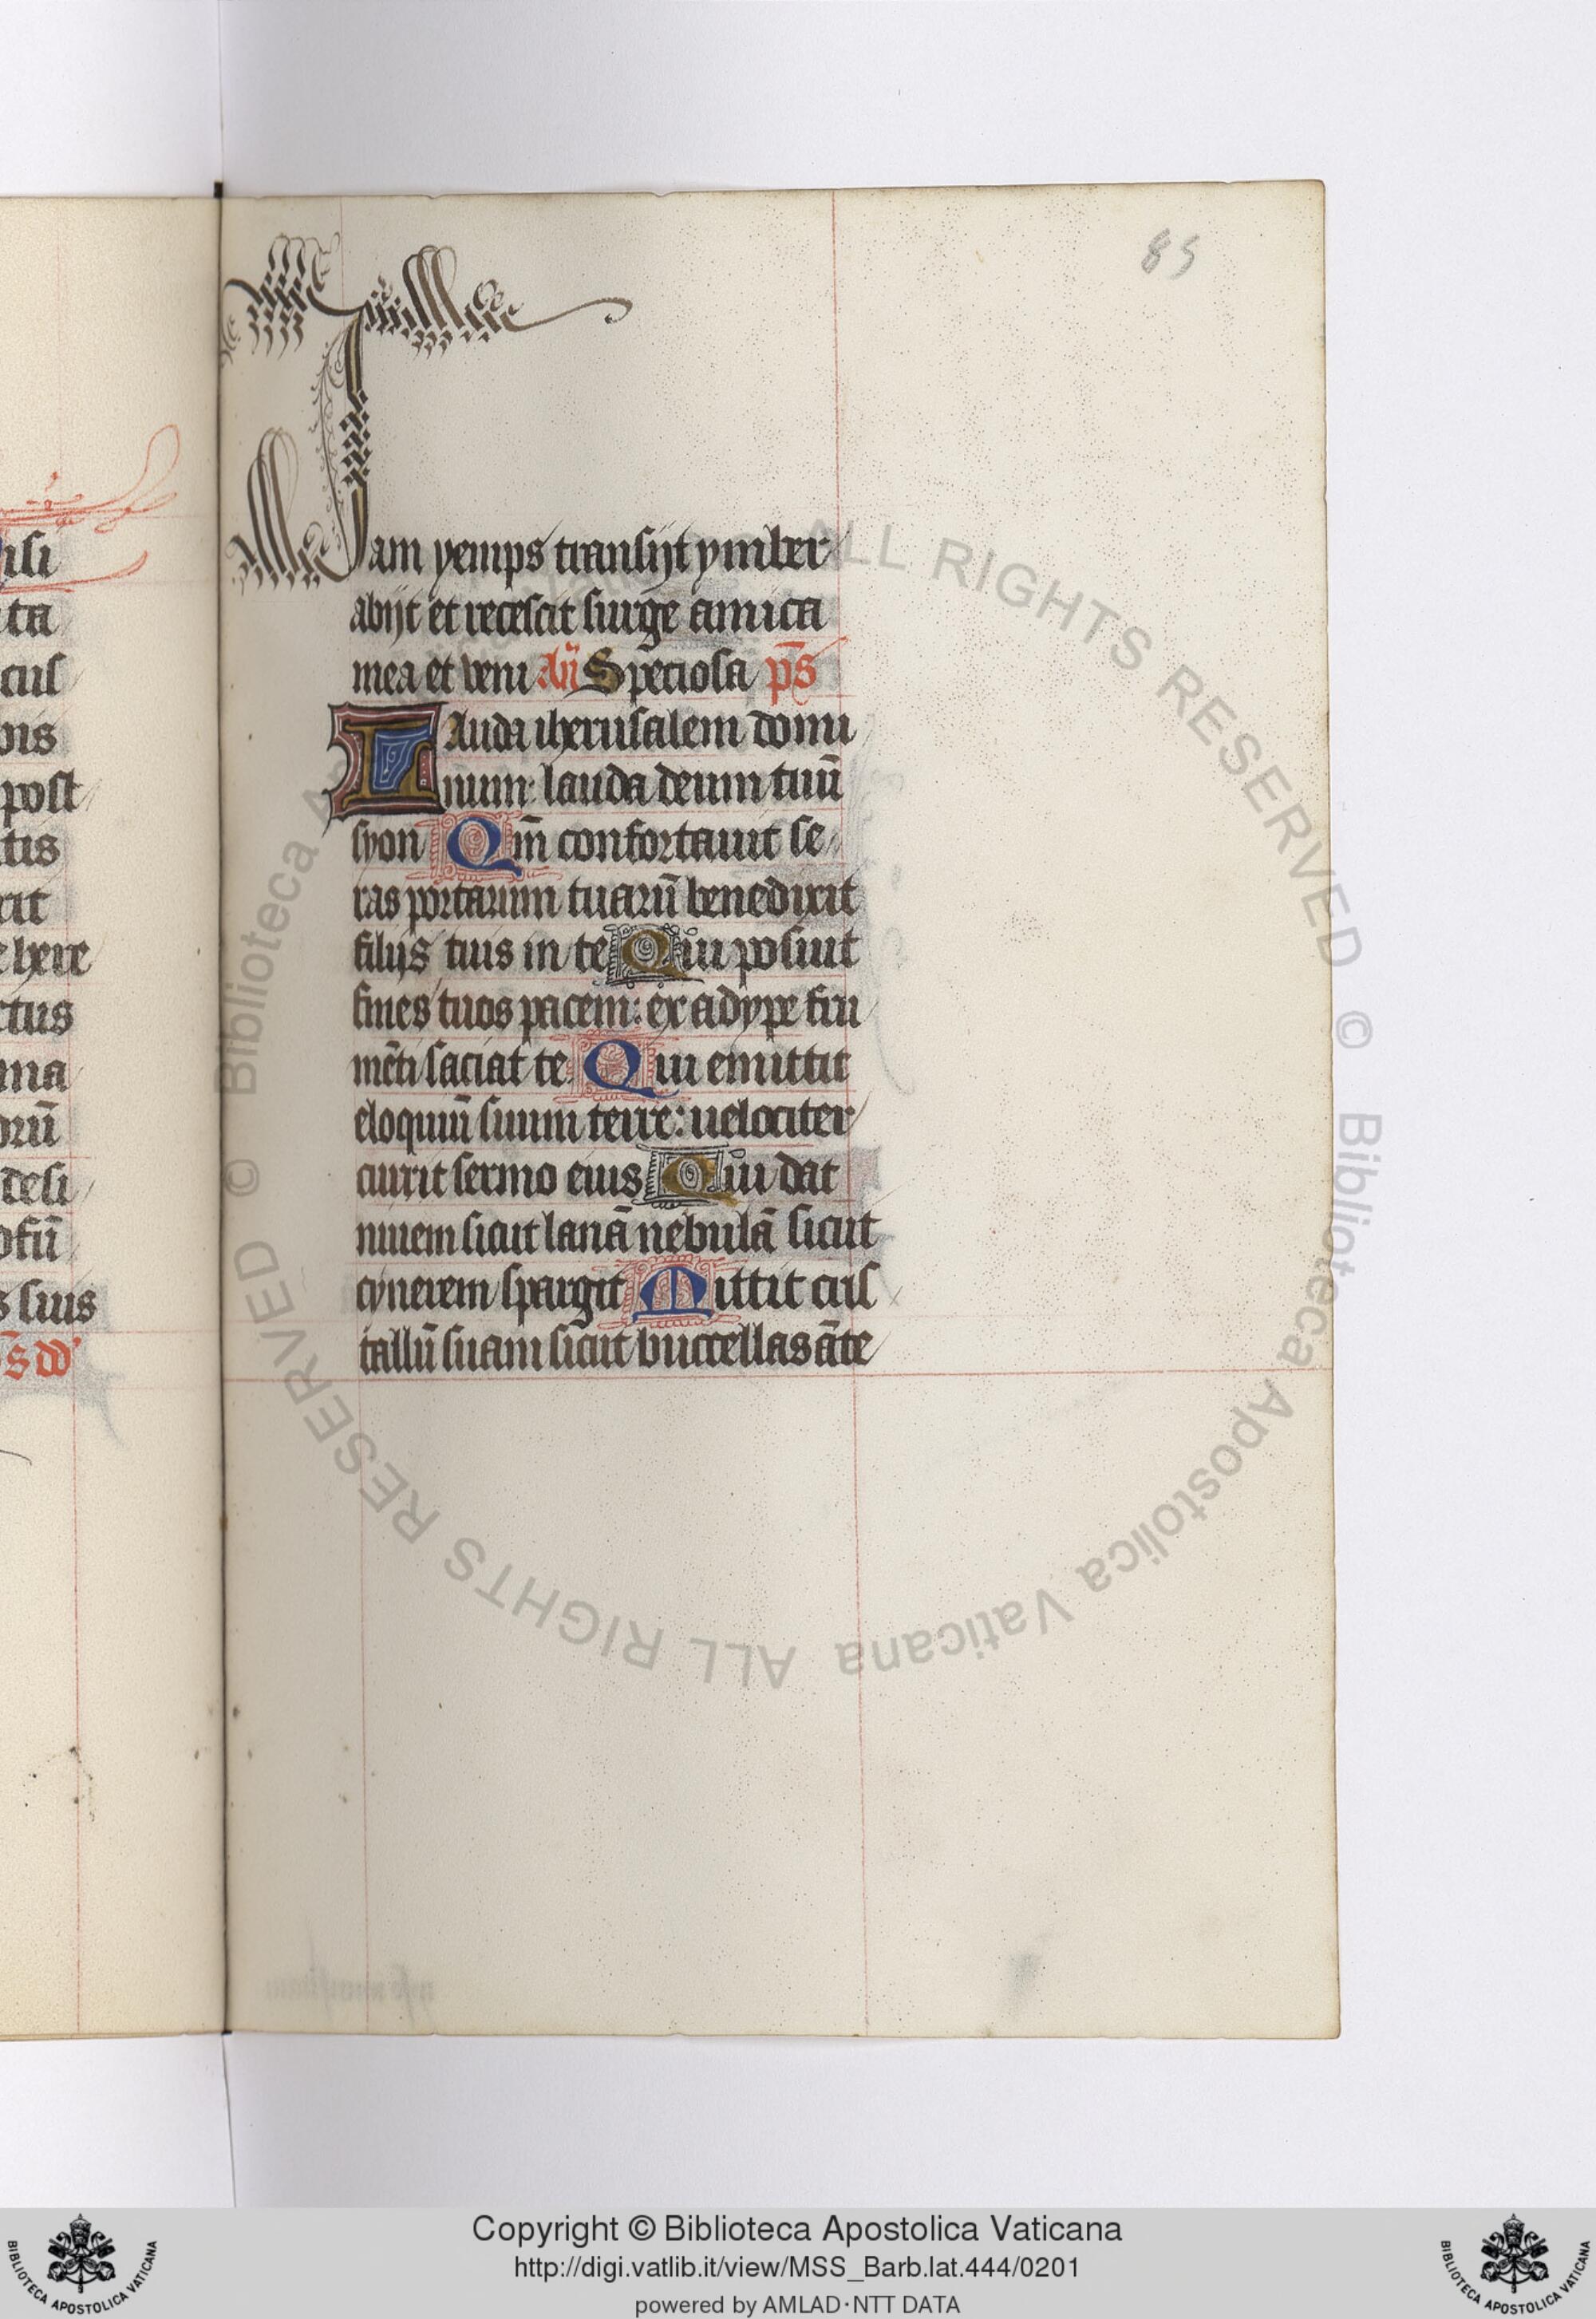 85
Jam yemps transijt ymber
abijt et recescit surge amica
mea et veni Añ Speciosa p̄s
LAuda iherusalem domi
num: lauda deum tuū
syon Qm̄ confortauit se
ras portarum tuarū benedixit
filijs tuis in te Qui posuit
fines tuos pacem: ex adype fru
mēti saciat te Qui emittit
eloquiū suum terre: uelociter
currit sermo eius Qui dat
niuem sicut lanā nebulā sicut
cynerem spargit Mittit cris
tallū suam sicut buccellas āte
isi
ta
cul
post
tis
here
ctus
ma
orū
desi
ofū
s suis
s dd'
© Biblioteca Apostolica Vaticana ALL RIGHTS RESERVED
© Biblioteca Apostolica Vaticana ALL RIGHTS RESERVED
BIBLIOTECA APOSTOLICA VATICANA
Copyright © Biblioteca Apostolica Vaticana
http://digi.vatlib.it/view/MSS_Barb.lat.444/0201
powered by AMLAD·NTT DATA
BIBLIOTECA APOSTOLICA VATICANA